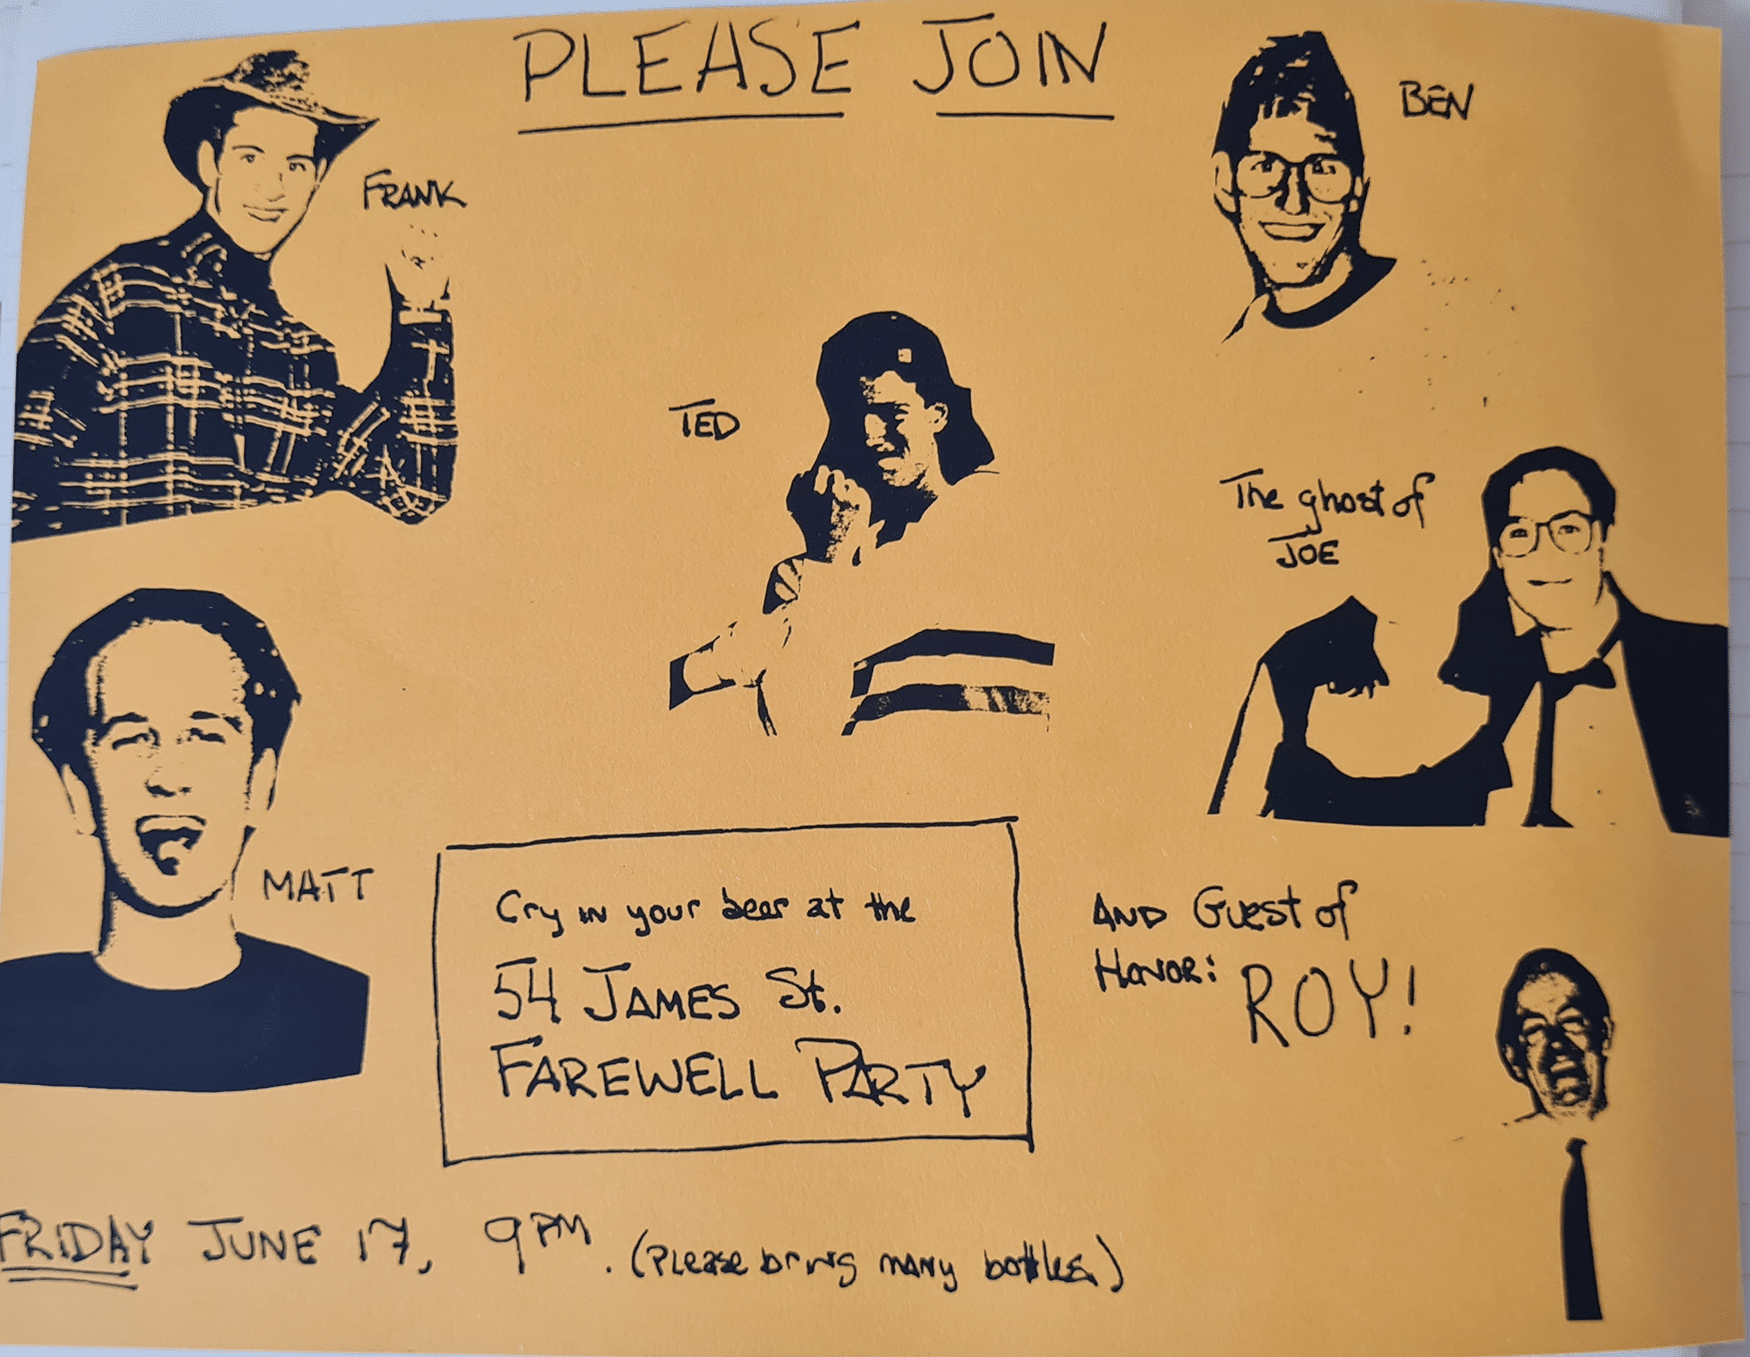 PLEASE JOIN
FRANK
BEN
TED
The ghost of
JOE
MATT
Cry in your beer at the
54 JAMES St.
FAREWELL PARTY
AND Guest of
Honor: ROY!
FRIDAY JUNE 17, 9PM. (Please bring many bottles)